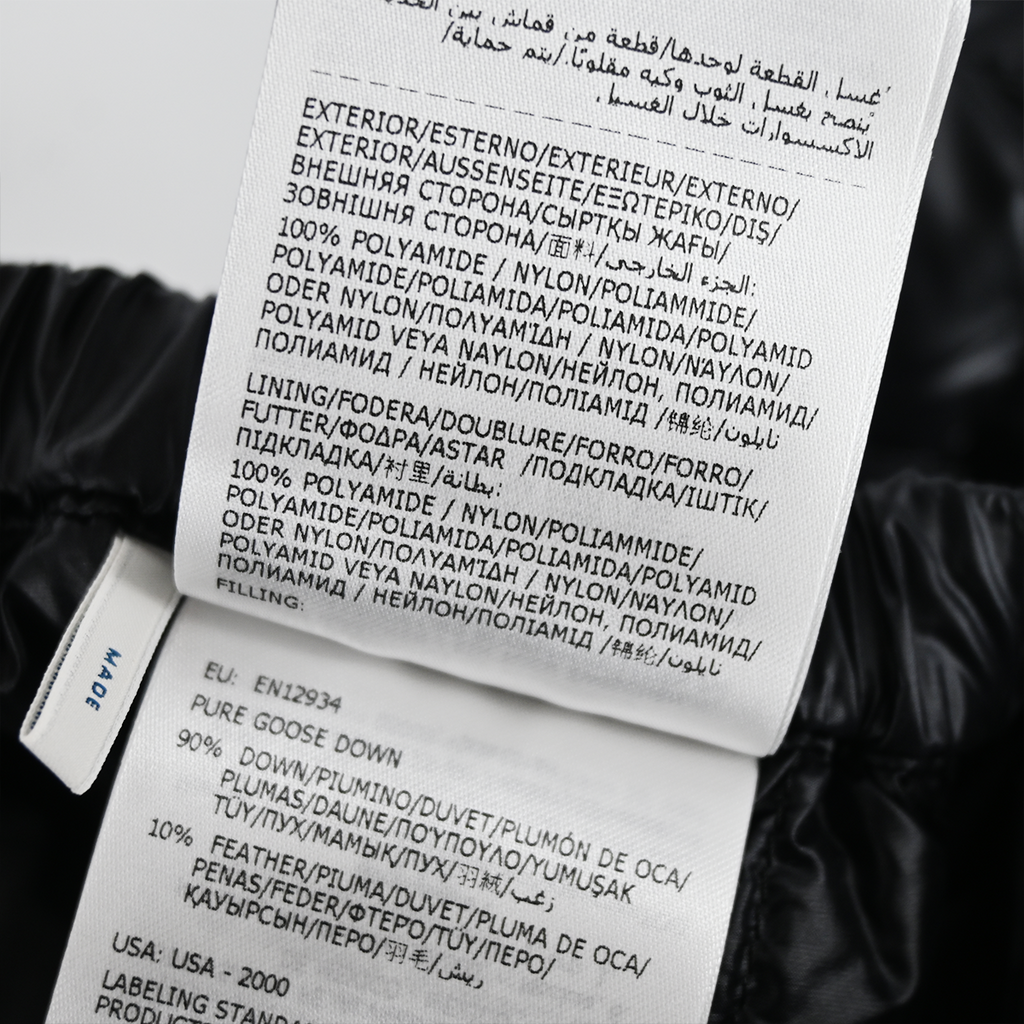 غسل القطعة لوحدها/قطعة من قماش بين
يُنصح بغسل الثوب وكيه مقلوبًا./يتم حماية/
الاكسسوارات خلال الغسيل.
EXTERIOR/ESTERNO/EXTERIEUR/EXTERNO/
EXTERIOR/AUSSENSEITE/ΕΞΩΤΕΡΙΚΟ/DIŞ/
ВНЕШНЯЯ СТОРОНА/СЫРТҚЫ ЖАҒЫ/
ЗОВНІШНЯ СТОРОНА/面料/الجزء الخارجي:
100% POLYAMIDE / NYLON/POLIAMMIDE/
POLYAMIDE/POLIAMIDA/POLIAMIDA/POLYAMID
ODER NYLON/ΠΟΛΥΑΜΊΔΗ / NYLON/ΝΆΥΛΟΝ/
POLYAMID VEYA NAYLON/НЕЙЛОН, ПОЛИАМИД/
ПОЛИАМИД / НЕЙЛОН/ПОЛІАМІД /锦纶/نايلون
LINING/FODERA/DOUBLURE/FORRO/FORRO/
FUTTER/ΦΟΔΡΑ/ASTAR /ПОДКЛАДКА/ІШТІК/
ПІДКЛАДКА/衬里/بطانة:
100% POLYAMIDE / NYLON/POLIAMMIDE/
POLYAMIDE/POLIAMIDA/POLIAMIDA/POLYAMID
ODER NYLON/ΠΟΛΥΑΜΊΔΗ / NYLON/ΝΆΥΛΟΝ/
POLYAMID VEYA NAYLON/НЕЙЛОН, ПОЛИАМИД/
ПОЛИАМИД / НЕЙЛОН/ПОЛІАМІД /锦纶/نايلون
FILLING:
MADE
EU: EN12934
PURE GOOSE DOWN
90% DOWN/PIUMINO/DUVET/PLUMÓN DE OCA/
PLUMAS/DAUNE/ΠΟΎΠΟΥΛΟ/YUMUŞAK
TÜY/ПУХ/МАМЫҚ/ПУХ/羽絨/زغب
10% FEATHER/PIUMA/DUVET/PLUMA DE OCA/
PENAS/FEDER/ΦΤΕΡΌ/TÜY/ПЕРО/
ҚАУЫРСЫН/ПЕРО/羽毛/ريش
USA: USA - 2000
LABELING STANDA
PRODUCT